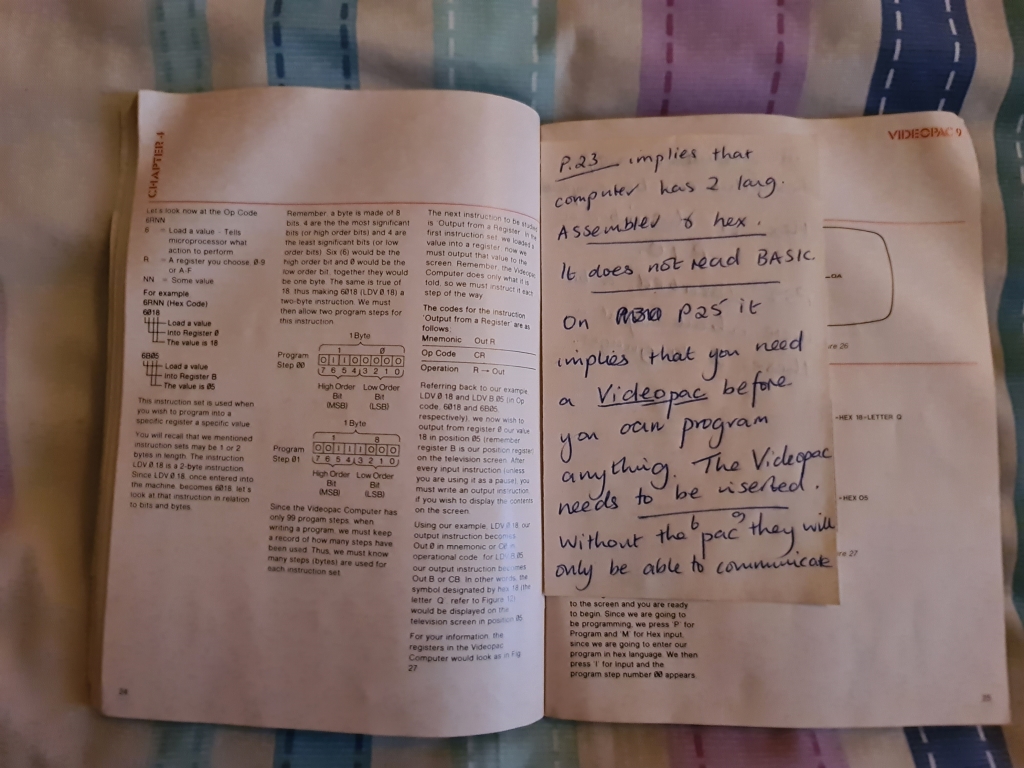 CHAPTER 4
Let's look now at the Op Code
6RNN
6 = Load a value - Tells
microprocessor what
action to perform
R = A register you choose, 0-9
or A-F
NN = Some value
For example
6RNN (Hex Code)
6018
Load a value
into Register 0
The value is 18
6B05
Load a value
into Register B
The value is 05
This instruction set is used when
you wish to program into a
specific register a specific value.
You will recall that we mentioned
instruction sets may be 1 or 2
bytes in length. The instruction
LDV 0.18 is a 2-byte instruction.
Since LDV 0.18, once entered into
the machine, becomes 6018, let's
look at that instruction in relation
to bits and bytes.
24
Remember, a byte is made of 8
bits. 4 are the the most significant
bits (or high order bits) and 4 are
the least significant bits (or low
order bits). Six (6) would be the
high order bit and 0 would be the
low order bit, together they would
be one byte. The same is true of
18, thus making 6018 (LDV 0.18) a
two-byte instruction. We must
then allow two program steps for
this instruction.
1 Byte
Program
Step 00
0 1 1 0 0 0 0 0
7 6 5 4 3 2 1 0
High Order Low Order
Bit Bit
(MSB) (LSB)
1 Byte
1 8
Program
Step 01
7 6 5 4 3 2 1 0
High Order Low Order
Bit Bit
(MSB) (LSB)
Since the Videopac Computer has
only 99 progam steps, when
writing a program, we must keep
a record of how many steps have
been used. Thus, we must know
many steps (bytes) are used for
each instruction set.
The next instruction to be studied
is 'Output from a Register'. In the
first instruction set, we loaded a
value into a register, now we
must output that value to the
screen. Remember, the Videopac
Computer does only what it is
told, so we must instruct it each
step of the way.
The codes for the instruction
'Output from a Register' are as
follows:
Mnemonic Out R
Op Code CR
Operation R → Out
Referring back to our example
LDV 0.18 and LDV B.05 (in Op
code, 6018 and 6B05,
respectively), we now wish to
output from register 0 our value
18 in position 05 (remember
register B is our position register)
on the television screen. After
every input instruction (unless
you are using it as a pause), you
must write an output instruction
if you wish to display the contents
on the screen.
Using our example, LDV 0.18, our
output instruction becomes
Out 0 in mnemonic or C0 in
operational code, for LDV B.05
our output instruction becomes
Out B or CB. In other words, the
symbol designated by hex 18 (the
letter 'Q', refer to Figure 12)
would be displayed on the
television screen in position 05.
For your information, the
registers in the Videopac
Computer would look as in Fig.
27.
VIDEOPAC 9
P.23 implies that
computer has 2 lang.
Assembler & hex.
It does not read BASIC.
On P25 it
implies that you need
a Videopac before
you can program
anything. The Videopac
needs to be inserted.
Without the pac 9 they will
only be able to communicate
26
HEX 18=LETTER Q
HEX 05
27
to the screen and you are ready
to begin. Since we are going to
be programming, we press 'P' for
Program and 'M' for Hex input,
since we are going to enter our
program in hex language. We then
press 'I' for Input and the
program step number 00 appears.
25